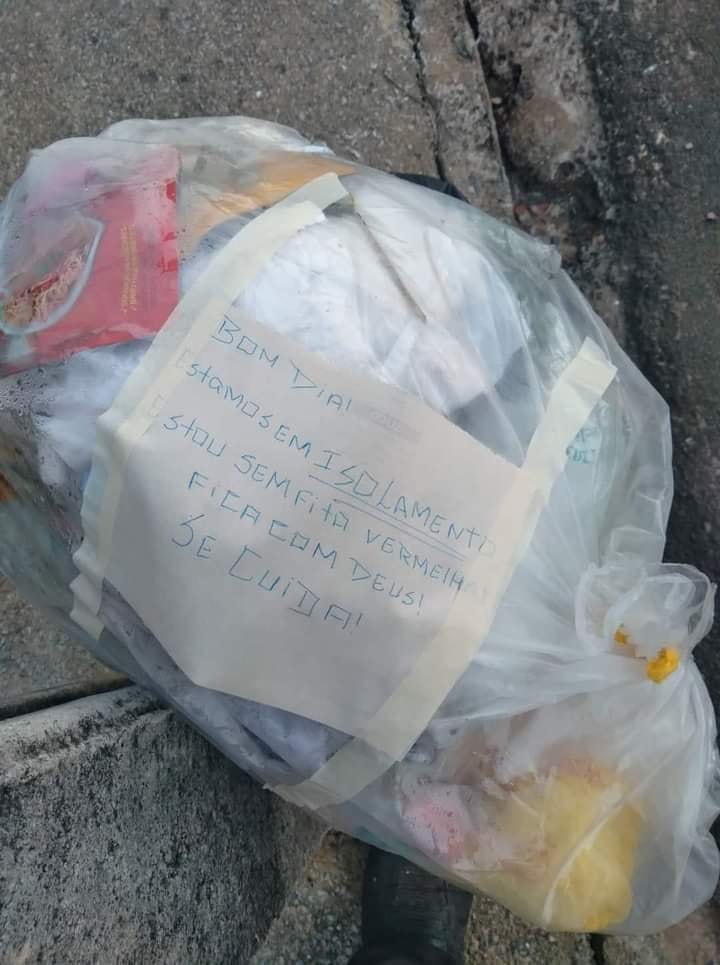 BOM DIA!
EStAMOS EM ISOLAMENTO
EStOU SEM FitA VERMELHA
FiCA COM DEUS!
SE CUiDA!